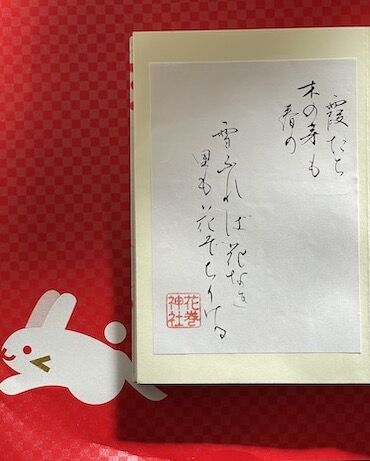 霞たち
木の芽も
春の
雪ふれば花なき
里も花ぞちりける
花巻
神社